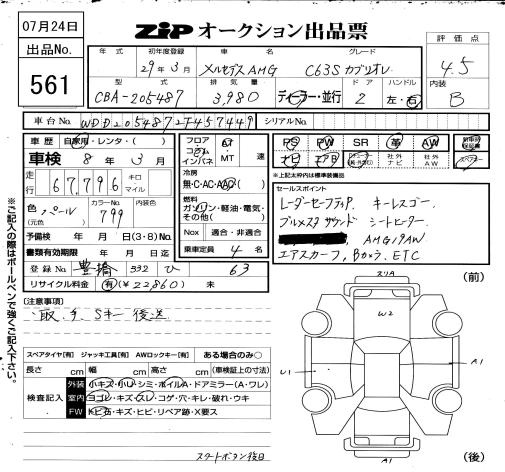 07月24日
ZIP オークション出品票
出品No.
561
評価点
4.5
内装
B
年式 初年度登録 車名 グレード
29年3月 メルセデスAMG C63S カブリオレ
型式 排気量 ドア ハンドル
CBA-205487 3,980 ディーラー・並行 2 左・右
車台No. WDD2054872F457449 シリアルNo.
車歴 自家用・レンタ・( )
車検 8年 3月
走行 67,796 キロ マイル
色 (元色) パール カラーNo. 799 内装色
予備検 年 月 日(3・8)No.
書類有効期限 年 月 日迄
登録No 豊橋 332 ひ 63
リサイクル料金 有(¥22860) 未
フロア コラム インパネ AT MT 速
冷房
無・C・AC・AAC
燃料
ガソリン・軽油・電気・その他( )
Nox 適合・非適合
乗車定員 4 名
PS PW SR 革 AW
ナビ エアB 社外ナビ 社外AW スペアキー
※上記太枠内は標準装備品
セールスポイント
レーダーセーフティP キーレスゴー
ブルメスタサウンド シートヒーター
AMG19AW
エアスカーフ, Boxラ, ETC
※ご記入の際はボールペンで強くご記入下さい。
[注意事項]
取、手、Sキー後送
スペアタイヤ[有] ジャッキ工具[有] AWロックキー[有] ある場合のみ○
長さ cm 幅 cm 高さ cm (車検証上の寸法)
検査記入
外装 小キズ・小U・シミ・ホイルA・ドアミラー(A・ワレ)
室内 ヨゴレ・キズ・スレ・コゲ・穴・キレ・破れ・ウキ
FW トビ石・キズ・ヒビ・リペア跡・X要ス
スタートボタン後日
(前)
スリA
W2
U1
A1
A1
(後)